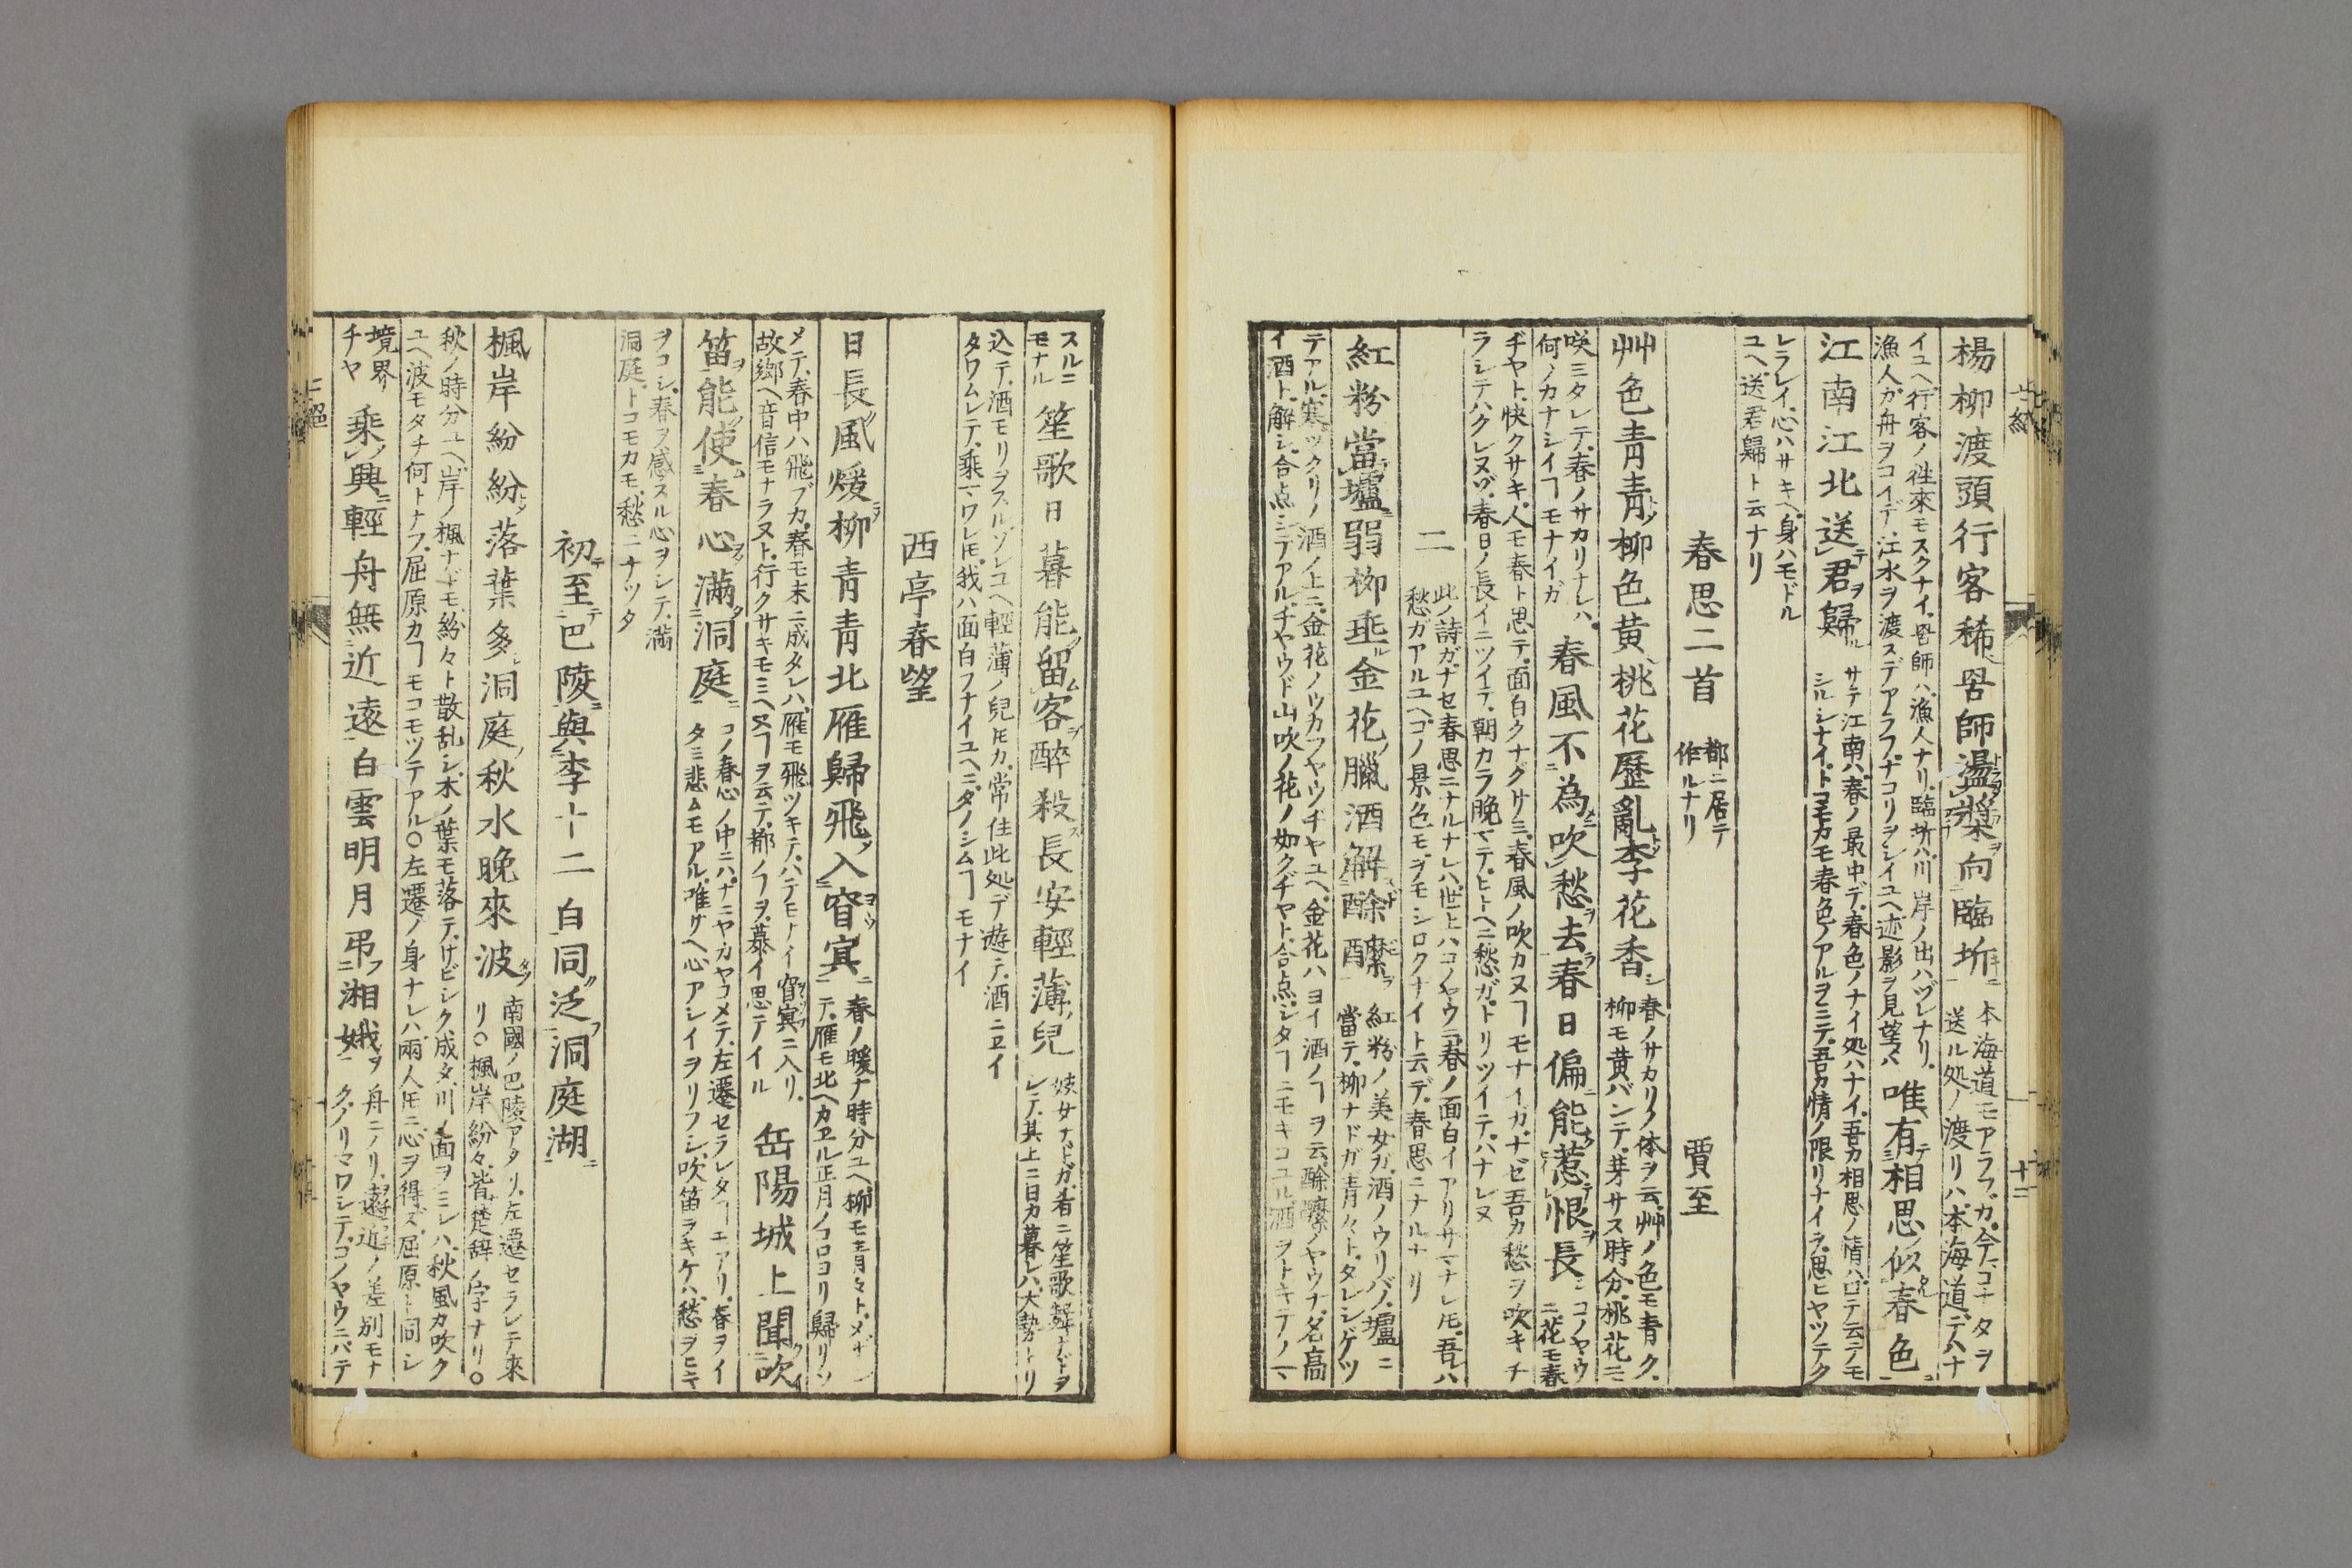 楊柳渡頭行客稀罟師盪槳向臨圻
本海道モアラフガ今コナタヲ
送ル処ノ渡リハ本海道デハナ
イユヘ行客ノ徃來モスクナイ罟師ハ漁人ナリ臨圻ハ川岸ノ出ハヅレナリ
漁人ガ舟ヲコイデ江水ヲ渡スデアラフナコリヲシイユヘ迹影ヲ見望メバ
唯有相思似春色
江南江北送君歸
サテ江南ハ春ノ最中デ春色ノナイ処ハナイ吾カ相思ノ情ハ口デ云テモ
シルシナイドコモカモ春色ノアルヲミテ吾カ情ノ限リナイヲ思ヒヤツテク
レラレイ心ハサキヘ身ハモドル
ユヘ送君歸ト云ナリ
春思二首
都ニ居テ
作ルナリ
賈至
艸色青青柳色黄桃花歷亂李花香
春ノサカリノ体ヲ云艸ノ色モ青ク
柳モ黄バンデ芽サス時分桃花ニ
咲ミタレテ春ノサカリナレハ
何ノカナシイヿモナイガ
春風不為吹愁去春日偏能惹恨長
コノヤウ
ニ花モ春
ヂヤト快クサキ人モ春ト思テ面白クナグサミ春風ノ吹カヌヿモナイガナゼ吾カ愁ヲ吹キチ
ラシテハクレヌゾ春日ノ長イニツイテ朝カラ晩マデヒトヘニ愁ガトリツイテハナレヌ
二
此ノ詩ガナセ春思ニナルナレハ世上ハコノヤウニ春ノ面白イアリサマナレ𪜈吾ハ
愁ガアルユヘコノ景色モヲモシロクナイト云デ春思ニナルナリ
紅粉當壚弱柳垂金花臘酒解酴醿
紅粉ノ美女ガ酒ノウリバノ壚ニ
當テ柳ナドガ青々トタレシゲツ
テアル寒ツクリノ酒ノ上ニ金花ノウカフヤウヂヤユヘ金花ハヨイ酒ノヿヲ云酴醿ノヤウナ名高
イ酒ト解シ合点シテアルヂヤウド山吹ノ花ノ如クヂヤト合点シタヿニモキコユル酒ヲトキテノマ
スルニ
モナル
笙歌日暮能留客醉殺長安輕薄兒
妓女ナドガ肴ニ笙歌舞ナドヲ
シテ其上ニ日カ暮レハ大勢トリ
込テ酒モリヲスルソレユヘ輕薄ノ兒𪜈カ常住此処デ遊テ酒ニヱイ
タワムレテ乘マワレ𪜈我ハ面白フナイユヘニタノシムヿモナイ
西亭春望
日長風煖柳青青北雁歸飛入窅冥
春ノ暖ナ時分ユヘ柳モ青々トメザシ
テ雁モ北ヘカヱル正月ノコロヨリ歸リソ
メテ春中ハ飛ブカ春モ末ニ成タレハ雁モ飛ツキテハテモナイ窅冥ニ入リ
故鄉ヘ音信モナラヌト行クサキモミヘヌヿヲ云テ都ノヿヲ慕イ思テイル
岳陽城上聞吹
笛能使春心滿洞庭
コノ春心ノ中ニハナニヤカヤコメテ左遷セラレタヿエアリ春ヲイ
タミ悲ムモアル唯サヘ心アシイヲリフシ吹笛ヲキケハ愁ヲヒキ
ヲコシ春ヲ感スル心ヲシテ滿
洞庭トコモカモ愁ニナツタ
初至巴陵與李十二白同泛洞庭湖
楓岸紛紛落葉多洞庭秋水晚來波
南國ノ巴陵アタリ左遷セラレテ來
リ〇楓岸紛々皆楚辞ノ字ナリ〇
秋ノ時分ユヘ岸ノ楓ナドモ紛々ト散乱シ木ノ葉モ落テサビシク成タ川ノ面ヲミレハ秋風カ吹ク
ユヘ波モタチ何トナフ屈原カヿモコモツテアル〇左遷ノ身ナレハ兩人𪜈ニ心ヲ得ズ屈原ト同シ
境界
チヤ
乘興輕舟無近遠白雲明月弔湘娥
舟ニノリ遠近ノ差別モナ
クノリマワシテコノヤウニハテ